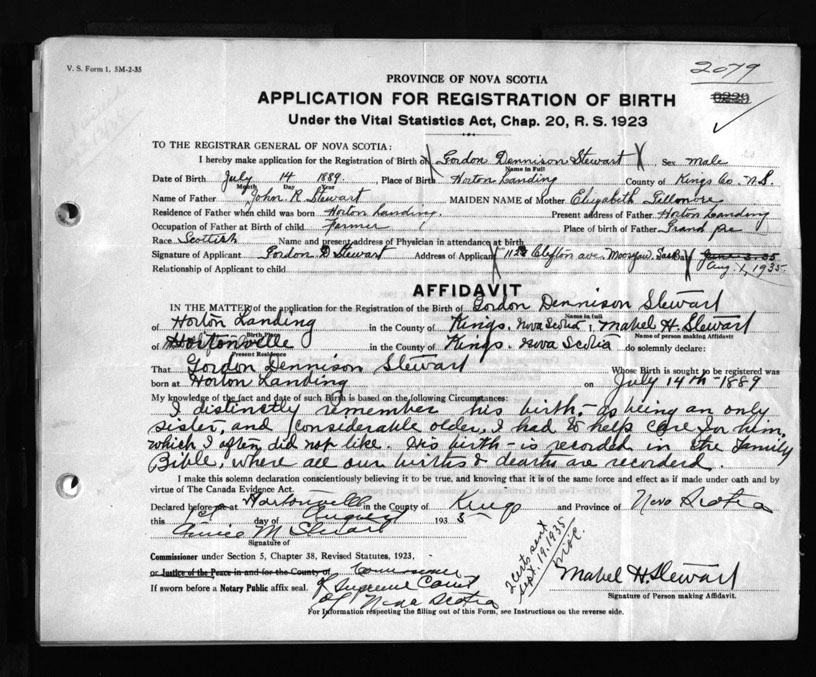 V. S. Form 1, 5M-2-35
2079
PROVINCE OF NOVA SCOTIA
APPLICATION FOR REGISTRATION OF BIRTH
Under the Vital Statistics Act, Chap. 20, R. S. 1923
TO THE REGISTRAR GENERAL OF NOVA SCOTIA:
I hereby make application for the Registration of Birth of Gordon Dennison Stewart Sex Male
Name in Full
Date of Birth July 14 1889. Place of Birth Horton Landing County of Kings Co. N.S.
Month Day Year
Name of Father John R Stewart MAIDEN NAME of Mother Elizabeth
Residence of Father when child was born Horton Landing. Present address of Father Horton Landing
Occupation of Father at Birth of child Farmer Place of birth of Father Grand Pre
Race Scottish Name and present address of Physician in attendance at birth
Signature of Applicant Gordon D Stewart Address of Applicant Clifton ave. Moosejaw. Sask Date June 3. 35
Relationship of Applicant to child Aug. 1, 1935.
AFFIDAVIT
IN THE MATTER of the application for the Registration of Birth of Gordon Dennison Stewart
Name in full
of Horton Landing in the County of Kings. Nova Scotia I, Mabel H. Stewart
Birth Name of person making Affidavit
of Hortonville in the County of Kings. Nova Scotia do solemnly declare:
Present Residence
That Gordon Dennison Stewart Whose Birth is sought to be registered was
born at Horton Landing on July 14th - 1889
My knowledge of the fact and date of such Birth is based on the following Circumstances:
I distinctly remember his birth, - as being an only
sister, and considerable older, I had to help care for him,
which I often did not like. His birth - is recorded in the Family
Bible, where all our births & deaths are recorderd.
I make this solemn declaration conscientiously believing it to be true, and knowing that it is of the same force and effect as if made under oath and by
virtue of The Canada Evidence Act.
Declared before me at Hortonville in the County of Kings and Province of Nova Scotia
this 1st day of August 1935
M Stewart
Signature of
Commissioner under Section 5, Chapter 38, Revised Statutes, 1923,
or Justice of the Peace in and for the County of Commissioner
If sworn before a Notary Public affix seal. of Supreme Court
of Nova Scotia
2 certs sent
Sept. 19, 1935
Mabel H. Stewart
Signature of Person making Affidavit.
For Information respecting the filling out of this Form, see Instructions on the reverse side.